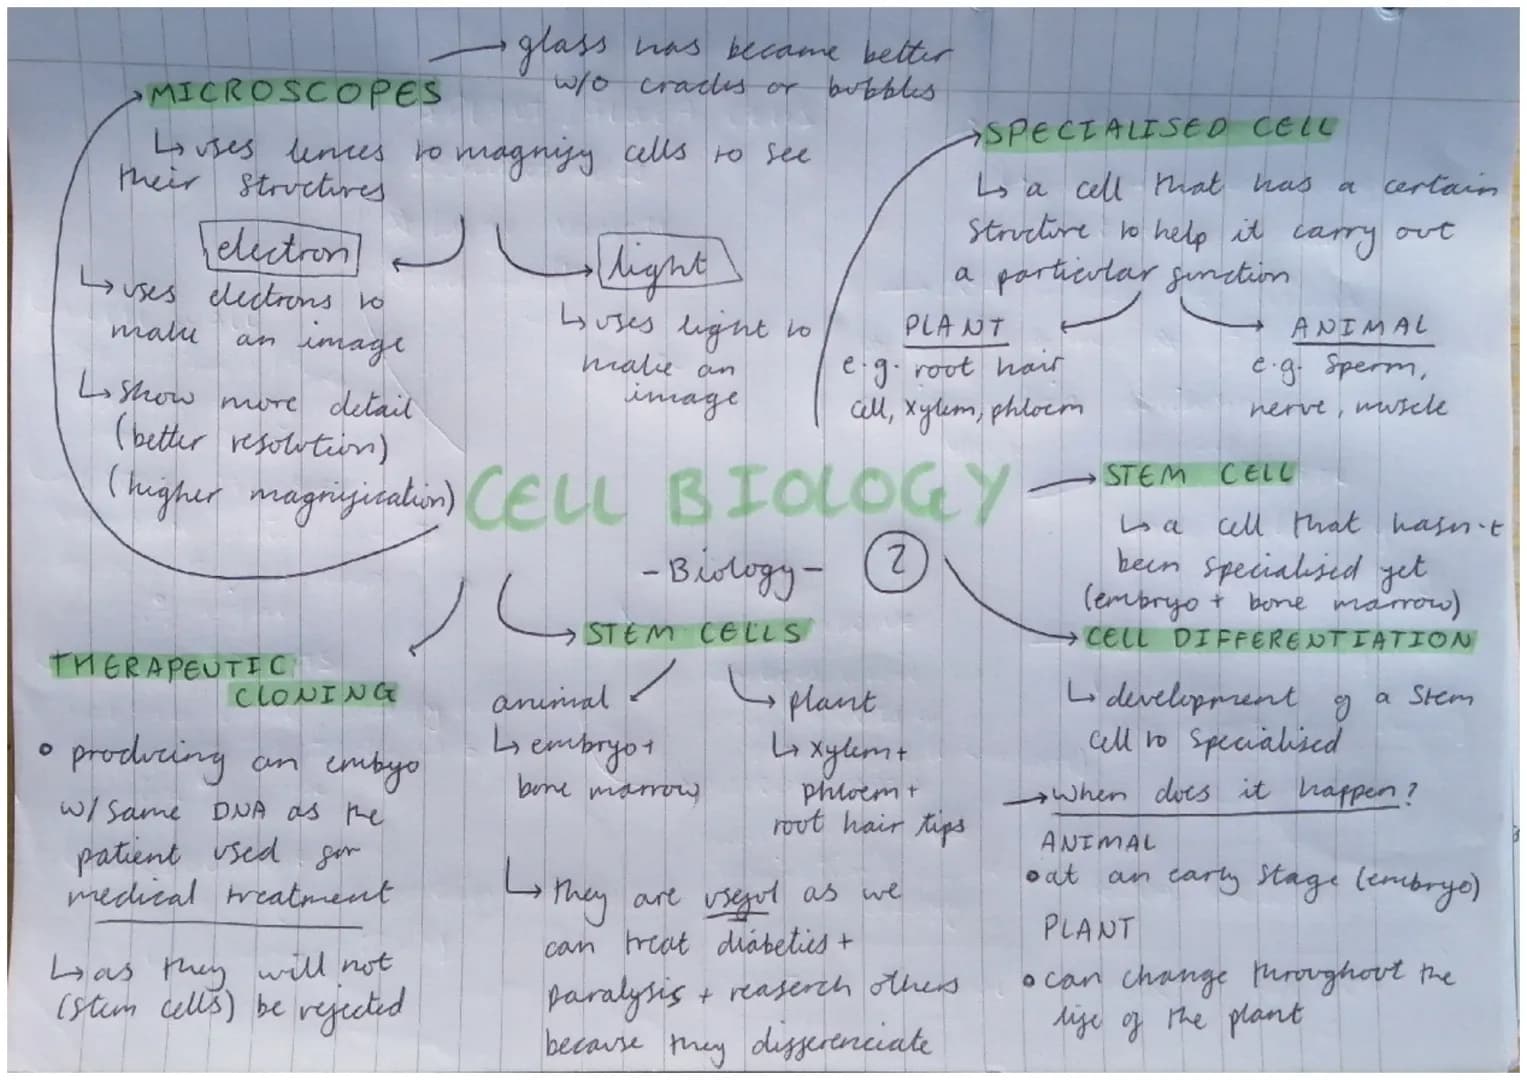 glass has became better
w/o cracks or bubbles
MICROSCOPES
↳ uses lences to magnify cells to see
their structures
electron
↳ uses electrons to
make an image
↳ show more detail
(better resolution)
(higher magnification)
light
↳ uses light to
make an
image
SPECIALISED CELL
↳ a cell that has a certain
structure to help it carry out
a particular function
PLANT
e.g. root hair
cell, xylem, phloem
ANIMAL
e.g. sperm,
nerve, muscle
CELL BIOLOGY
-Biology-
2
STEM CELL
↳ a cell that hasn't
been specialised yet
(embryo + bone marrow)
CELL DIFFERENTIATION
↳ development of a stem
cell to specialised
→ when does it happen?
ANIMAL
• at an early stage (embryo)
PLANT
• can change throughout the
life of the plant
THERAPEUTIC
CLONING
• producing an embyo
w/ same DNA as the
patient used for
medical treatment
↳ as they will not
(stem cells) be rejected
STEM CELLS
animal
↳ embryo +
bone marrow
plant
↳ xylem +
phloem +
root hair tips
↳ they are useful as we
can treat diabetics +
paralysis + reaserch others
because they differenciate